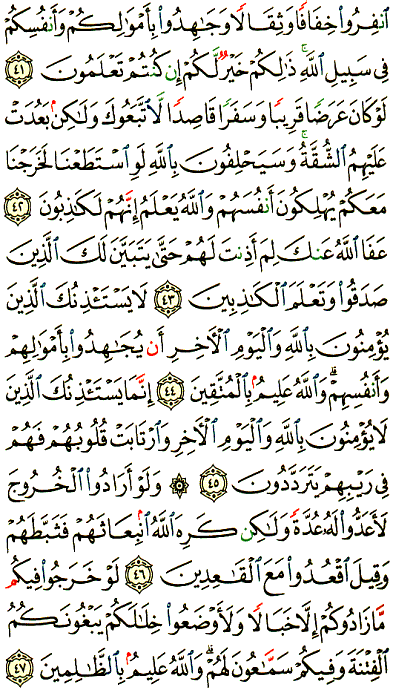 ٱنفِرُوا۟ خِفَافًا وَثِقَالًا وَجَٰهِدُوا۟ بِأَمْوَٰلِكُمْ وَأَنفُسِكُمْ
فِى سَبِيلِ ٱللَّهِ ۚ ذَٰلِكُمْ خَيْرٌ لَّكُمْ إِن كُنتُمْ تَعْلَمُونَ ٤١
لَوْ كَانَ عَرَضًا قَرِيبًا وَسَفَرًا قَاصِدًا لَّٱتَّبَعُوكَ وَلَٰكِنۢ بَعُدَتْ
عَلَيْهِمُ ٱلشُّقَّةُ ۚ وَسَيَحْلِفُونَ بِٱللَّهِ لَوِ ٱسْتَطَعْنَا لَخَرَجْنَا
مَعَكُمْ يُهْلِكُونَ أَنفُسَهُمْ وَٱللَّهُ يَعْلَمُ إِنَّهُمْ لَكَٰذِبُونَ ٤٢
عَفَا ٱللَّهُ عَنكَ لِمَ أَذِنتَ لَهُمْ حَتَّىٰ يَتَبَيَّنَ لَكَ ٱلَّذِينَ
صَدَقُوا۟ وَتَعْلَمَ ٱلْكَٰذِبِينَ ٤٣ لَا يَسْتَـْٔذِنُكَ ٱلَّذِينَ
يُؤْمِنُونَ بِٱللَّهِ وَٱلْيَوْمِ ٱلْـَٔاخِرِ أَن يُجَٰهِدُوا۟ بِأَمْوَٰلِهِمْ
وَأَنفُسِهِمْ ۗ وَٱللَّهُ عَلِيمٌۢ بِٱلْمُتَّقِينَ ٤٤ إِنَّمَا يَسْتَـْٔذِنُكَ ٱلَّذِينَ
لَا يُؤْمِنُونَ بِٱللَّهِ وَٱلْيَوْمِ ٱلْـَٔاخِرِ وَٱرْتَابَتْ قُلُوبُهُمْ فَهُمْ
فِى رَيْبِهِمْ يَتَرَدَّدُونَ ٤٥ ۞ وَلَوْ أَرَادُوا۟ ٱلْخُرُوجَ
لَأَعَدُّوا۟ لَهُۥ عُدَّةً وَلَٰكِن كَرِهَ ٱللَّهُ ٱنۢبِعَاثَهُمْ فَثَبَّطَهُمْ
وَقِيلَ ٱقْعُدُوا۟ مَعَ ٱلْقَٰعِدِينَ ٤٦ لَوْ خَرَجُوا۟ فِيكُم
مَّا زَادُوكُمْ إِلَّا خَبَالًا وَلَأَوْضَعُوا۟ خِلَٰلَكُمْ يَبْغُونَكُمُ
ٱلْفِتْنَةَ وَفِيكُمْ سَمَّٰعُونَ لَهُمْ ۗ وَٱللَّهُ عَلِيمٌۢ بِٱلظَّٰلِمِينَ ٤٧